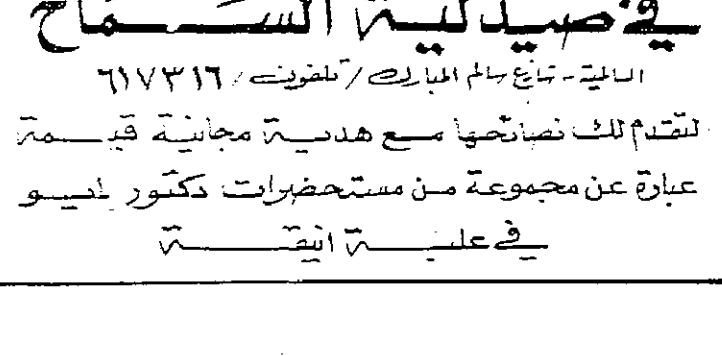 في صيدلية السماح
السالمية - شارع سالم المبارك / تلفون / ٦١٧٣١٦
لتقدم لك نصائحها مع هدية مجانية قيمة
عبارة عن مجموعة من مستحضرات دكتور
في علبة انيقة